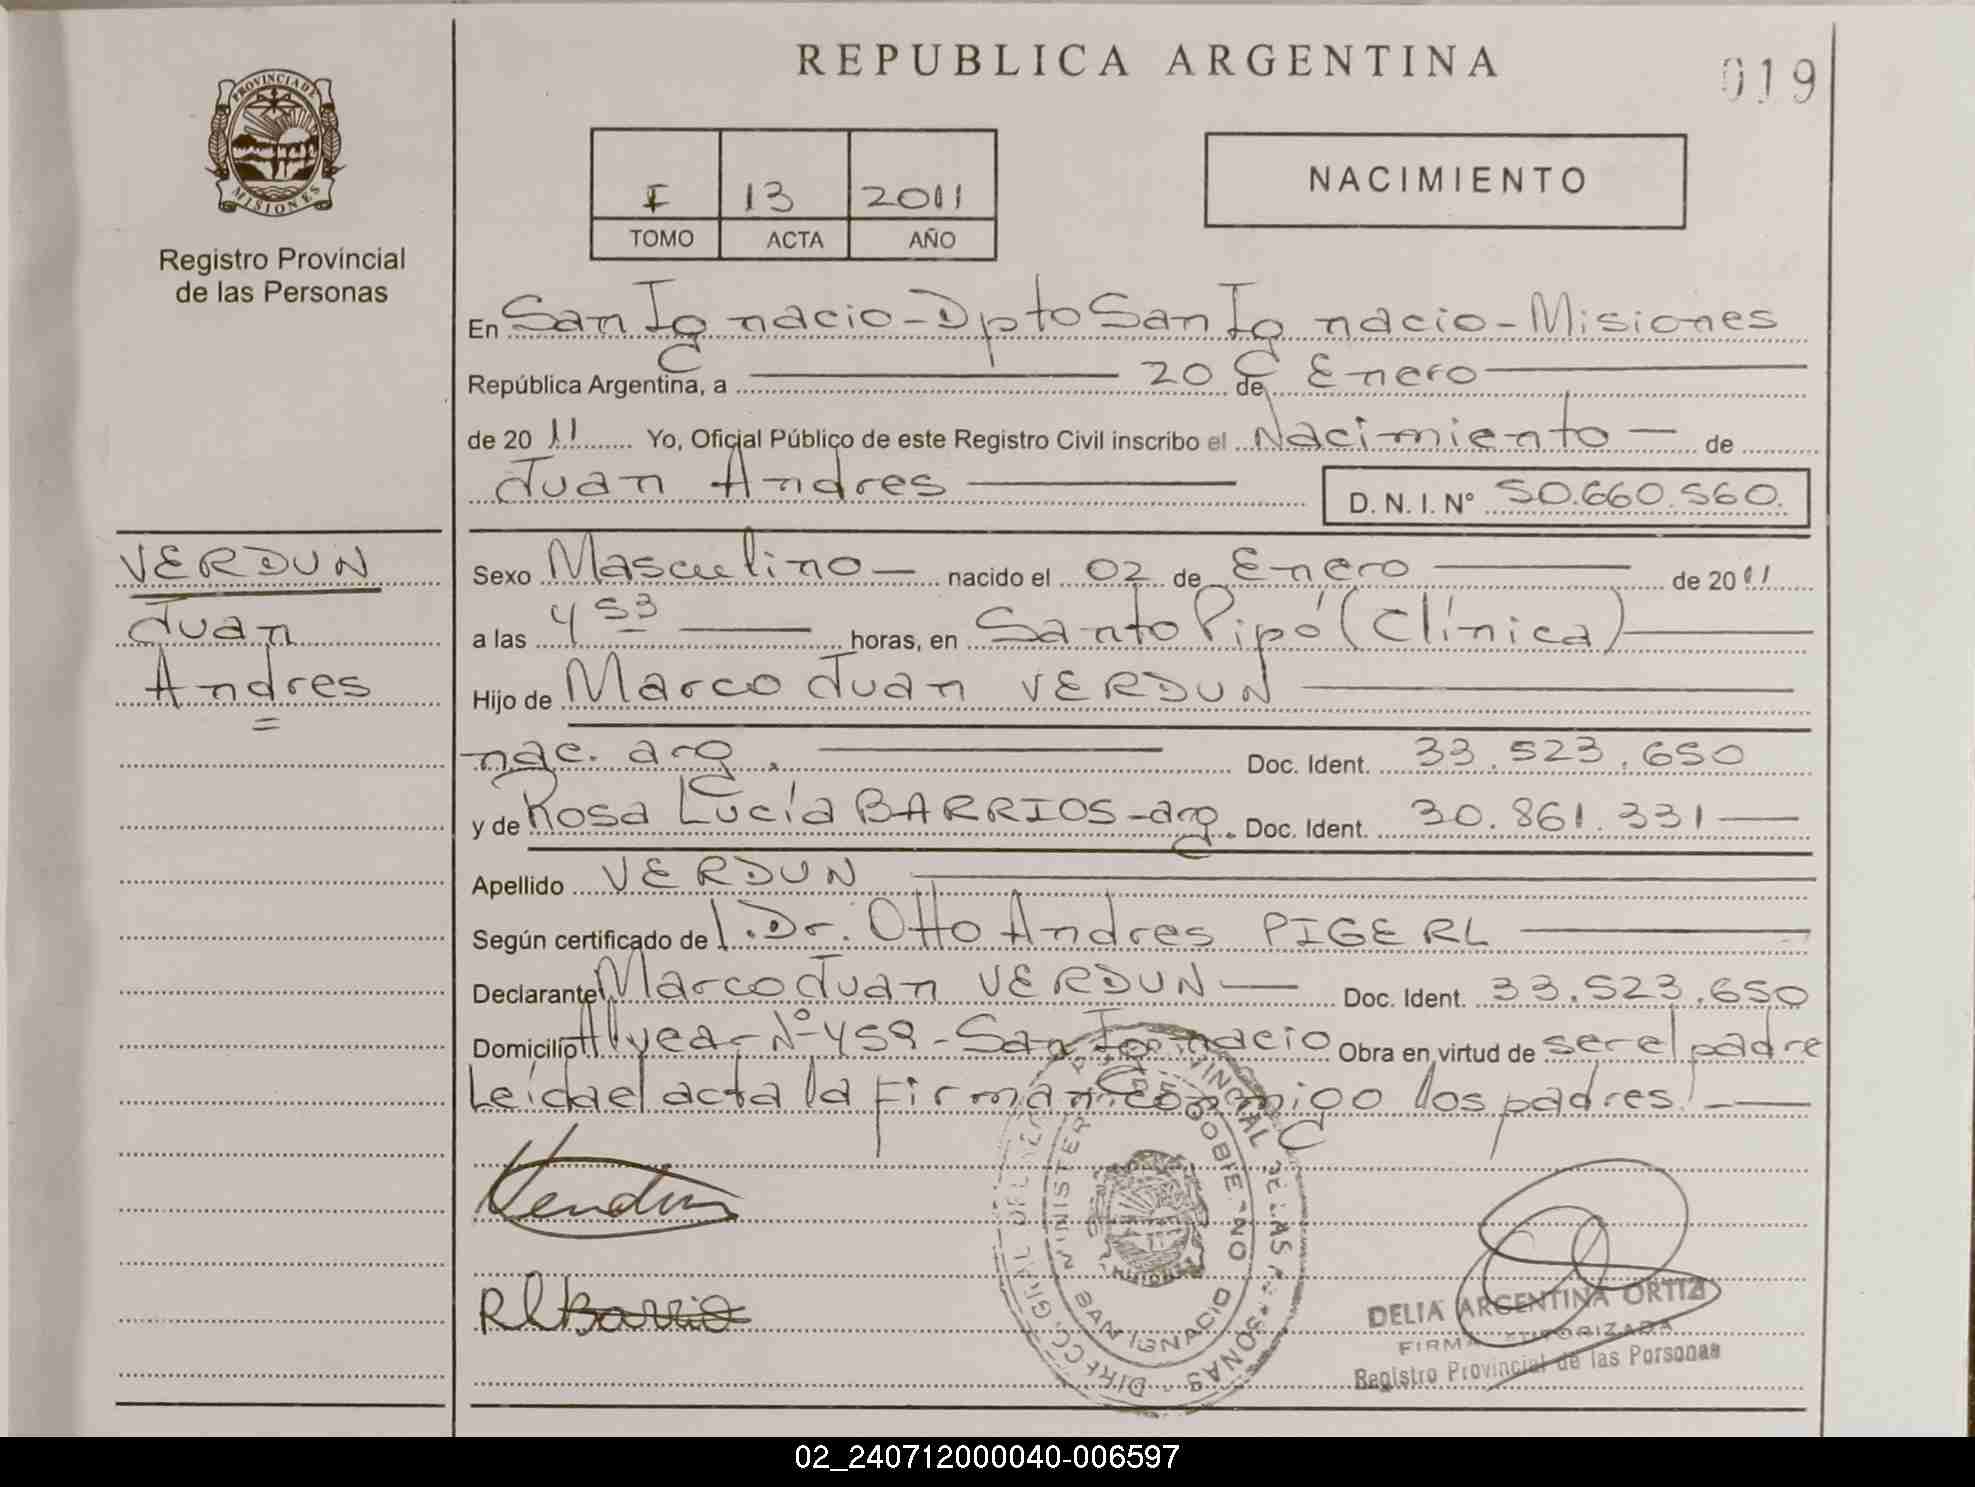 REPUBLICA ARGENTINA
019
PROVINCIA DE
MISIONES
Registro Provincial
de las Personas
I 13 2011
TOMO ACTA AÑO
NACIMIENTO
En San Ignacio - Dpto San Ignacio - Misiones
República Argentina, a 20 de Enero
de 2011 Yo, Oficial Público de este Registro Civil inscribo el Nacimiento - de
Juan Andres D. N. I. Nº 50.660.560.
VERDUN
Juan
Andres
Sexo Masculino - nacido el 02 de Enero de 2011
a las 4 53 horas, en Santo Pipó (Clínica)
Hijo de Marco Juan VERDUN
nac. arg. Doc. Ident. 33.523.650
y de Rosa Lucía BARRIOS - arg. Doc. Ident. 30.861.331
Apellido VERDUN
Según certificado del Dr. Otto Andres PIGERL
Declarante Marco Juan VERDUN Doc. Ident. 33.523.650
Domicilio Nº 459 - San Ignacio Obra en virtud de ser el padre
Leída el acta la firman conmigo los padres
Verdun
RLBarrio
DIRECC. GRAL. DEL REG. PROVINCIAL DE LAS PERSONAS
MINISTERIO DE GOBIERNO
SAN IGNACIO
MISIONES
DELIA ARGENTINA ORTIZ
FIRMA AUTORIZADA
Registro Provincial de las Personas
02_240712000040-006597